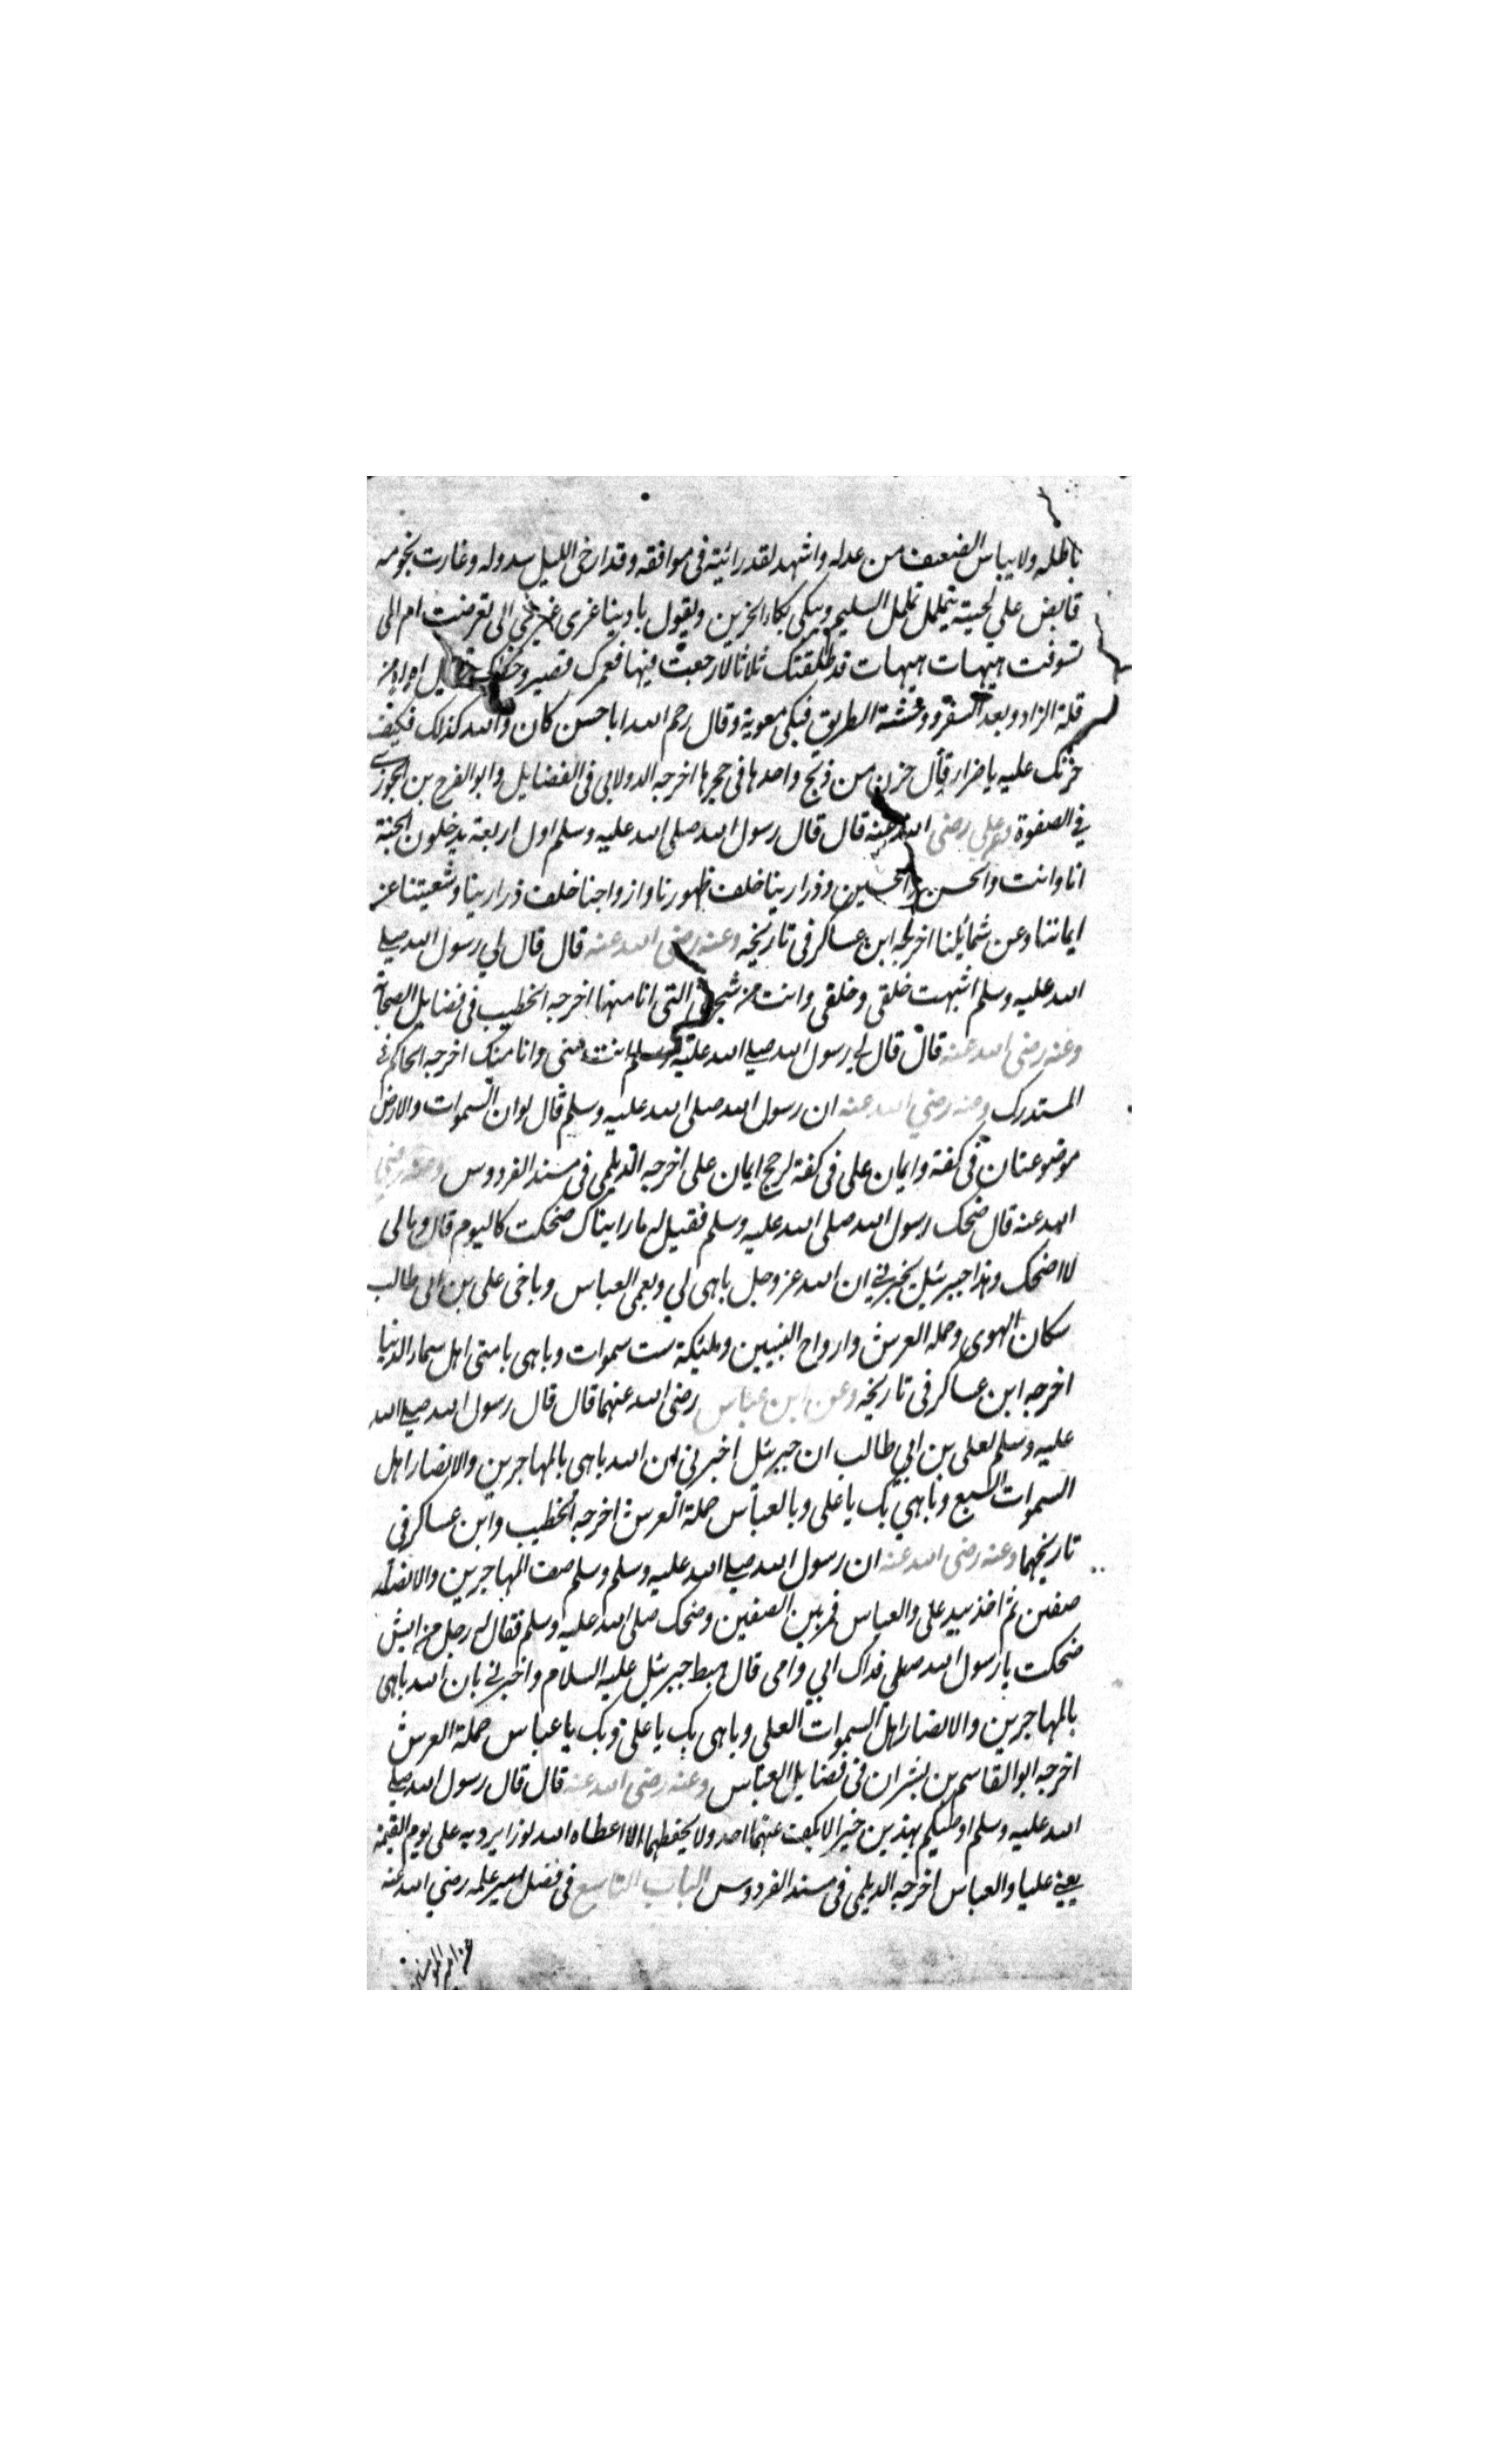 باطله ولا ييباس الضعيف من عدله واشهد لقد رائيته فى موافقه وقد ارخى الليل سدوله وغارت نجومه
قابض على لحيته يتململ تململ السليم ويبكى بكاء الحزين ويقول يا دينا غرى غيرى الى تعرضت ام الى
تسوفت هيهات هيهات قد طلقتك ثلاثا لا رجعت فيها فعمرك قصير وخطرك اه اه من
قلة الزاد وبعد السفر ووحشة الطريق فبكى معوية وقال رحم الله ابا حسن كان والله كذلك فكيف
حزنك عليه يا ضرار قال حزن من ذبح واحدها فى حجرها اخرجه الدولابى فى الفضايل وابو الفرج بن الجوزى
في الصفوة وعن على رضى الله عنه قال قال رسول الله صلى الله عليه وسلم اول اربعة يدخلون الجنة
انا وانت والحسن والحسين وذرارينا خلف ظهورنا وازواجنا خلف ذرارينا وشعيتنا عن
ايماننا وعن شمائلنا اخرجه ابن عساكر فى تاريخه وعنه رضى الله عنه قال قال لي رسول الله صلى
الله عليه وسلم اشبهت خلقى وخلقى وانت من شجرتى التى انا منها اخرجه الخطيب فى فضايل الصحابة
وعنه رضى الله عنه قال قال لى رسول الله صلى الله عليه وسلم انت منى وانا منك اخرجه الحاكم فى
المستدرك وعنه رضي الله عنه ان رسول الله صلى الله عليه وسلم قال لو ان السموات والارض
موضوعتان فى كفة وايمان على فى كفة لرجح ايمان على اخرجه الديلمى فى مسند الفردوس وعنه رضي
الله عنه قال ضحك رسول الله صلى الله عليه وسلم فقيل له ما رايناك ضحكت كاليوم قال ومالى
لا اضحك وهذا جبرئيل يخبرنى ان الله عز وجل باهى لي وبعمى العباس وباخى على بن ابى طالب
سكان الهوى وحمله العرش وارواح النبيين وملئكة ست سموات وباهى بامتى اهل سماء الدنيا
اخرجه ابن عساكر فى تاريخه وعن ابن عباس رضى الله عنهما قال قال رسول الله صلى الله
عليه وسلم لعلى بن ابي طالب ان جبرئيل اخبرنى ان الله باهى بالمهاجرين والانصار اهل
السموات السبع وباهى بك يا على وبالعباس حملة العرش اخرجه الخطيب وابن عساكر فى
تاريخهما وعنه رضى الله عنه ان رسول الله صلى الله عليه وسلم وسلم صف المهاجرين والانصار
صفين ثم اخذ بيد على والعباس فمر بين الصفين وضحك صلى الله عليه وسلم فقال له رجل من ايش
ضحكت يا رسول الله صلى فداك ابي وامى قال هبط جبرئيل عليه السلام واخبرنى بان الله باهى
بالمهاجرين والانصار اهل السموات العلى وباهى بك يا على وبك يا عباس حملة العرش
اخرجه ابو القاسم بن بشران فى فضايل العباس وعنه رضى الله عنه قال قال رسول الله صلى
الله عليه وسلم اوصيكم بهذين خيرا لا يكف عنهما احد ولا يحفظهما الا اعطاه الله نورا يرد به على يوم القيمة
يعنى عليا والعباس اخرجه الديلمى فى مسند الفردوس الباب التاسع فى فضل علمه رضي الله عنه
عن امير المومنين